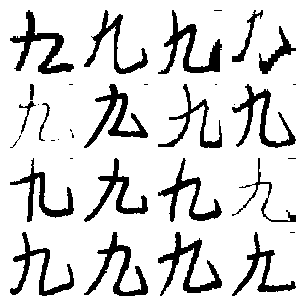 九九九九
九九九九
九九九九
九九九九